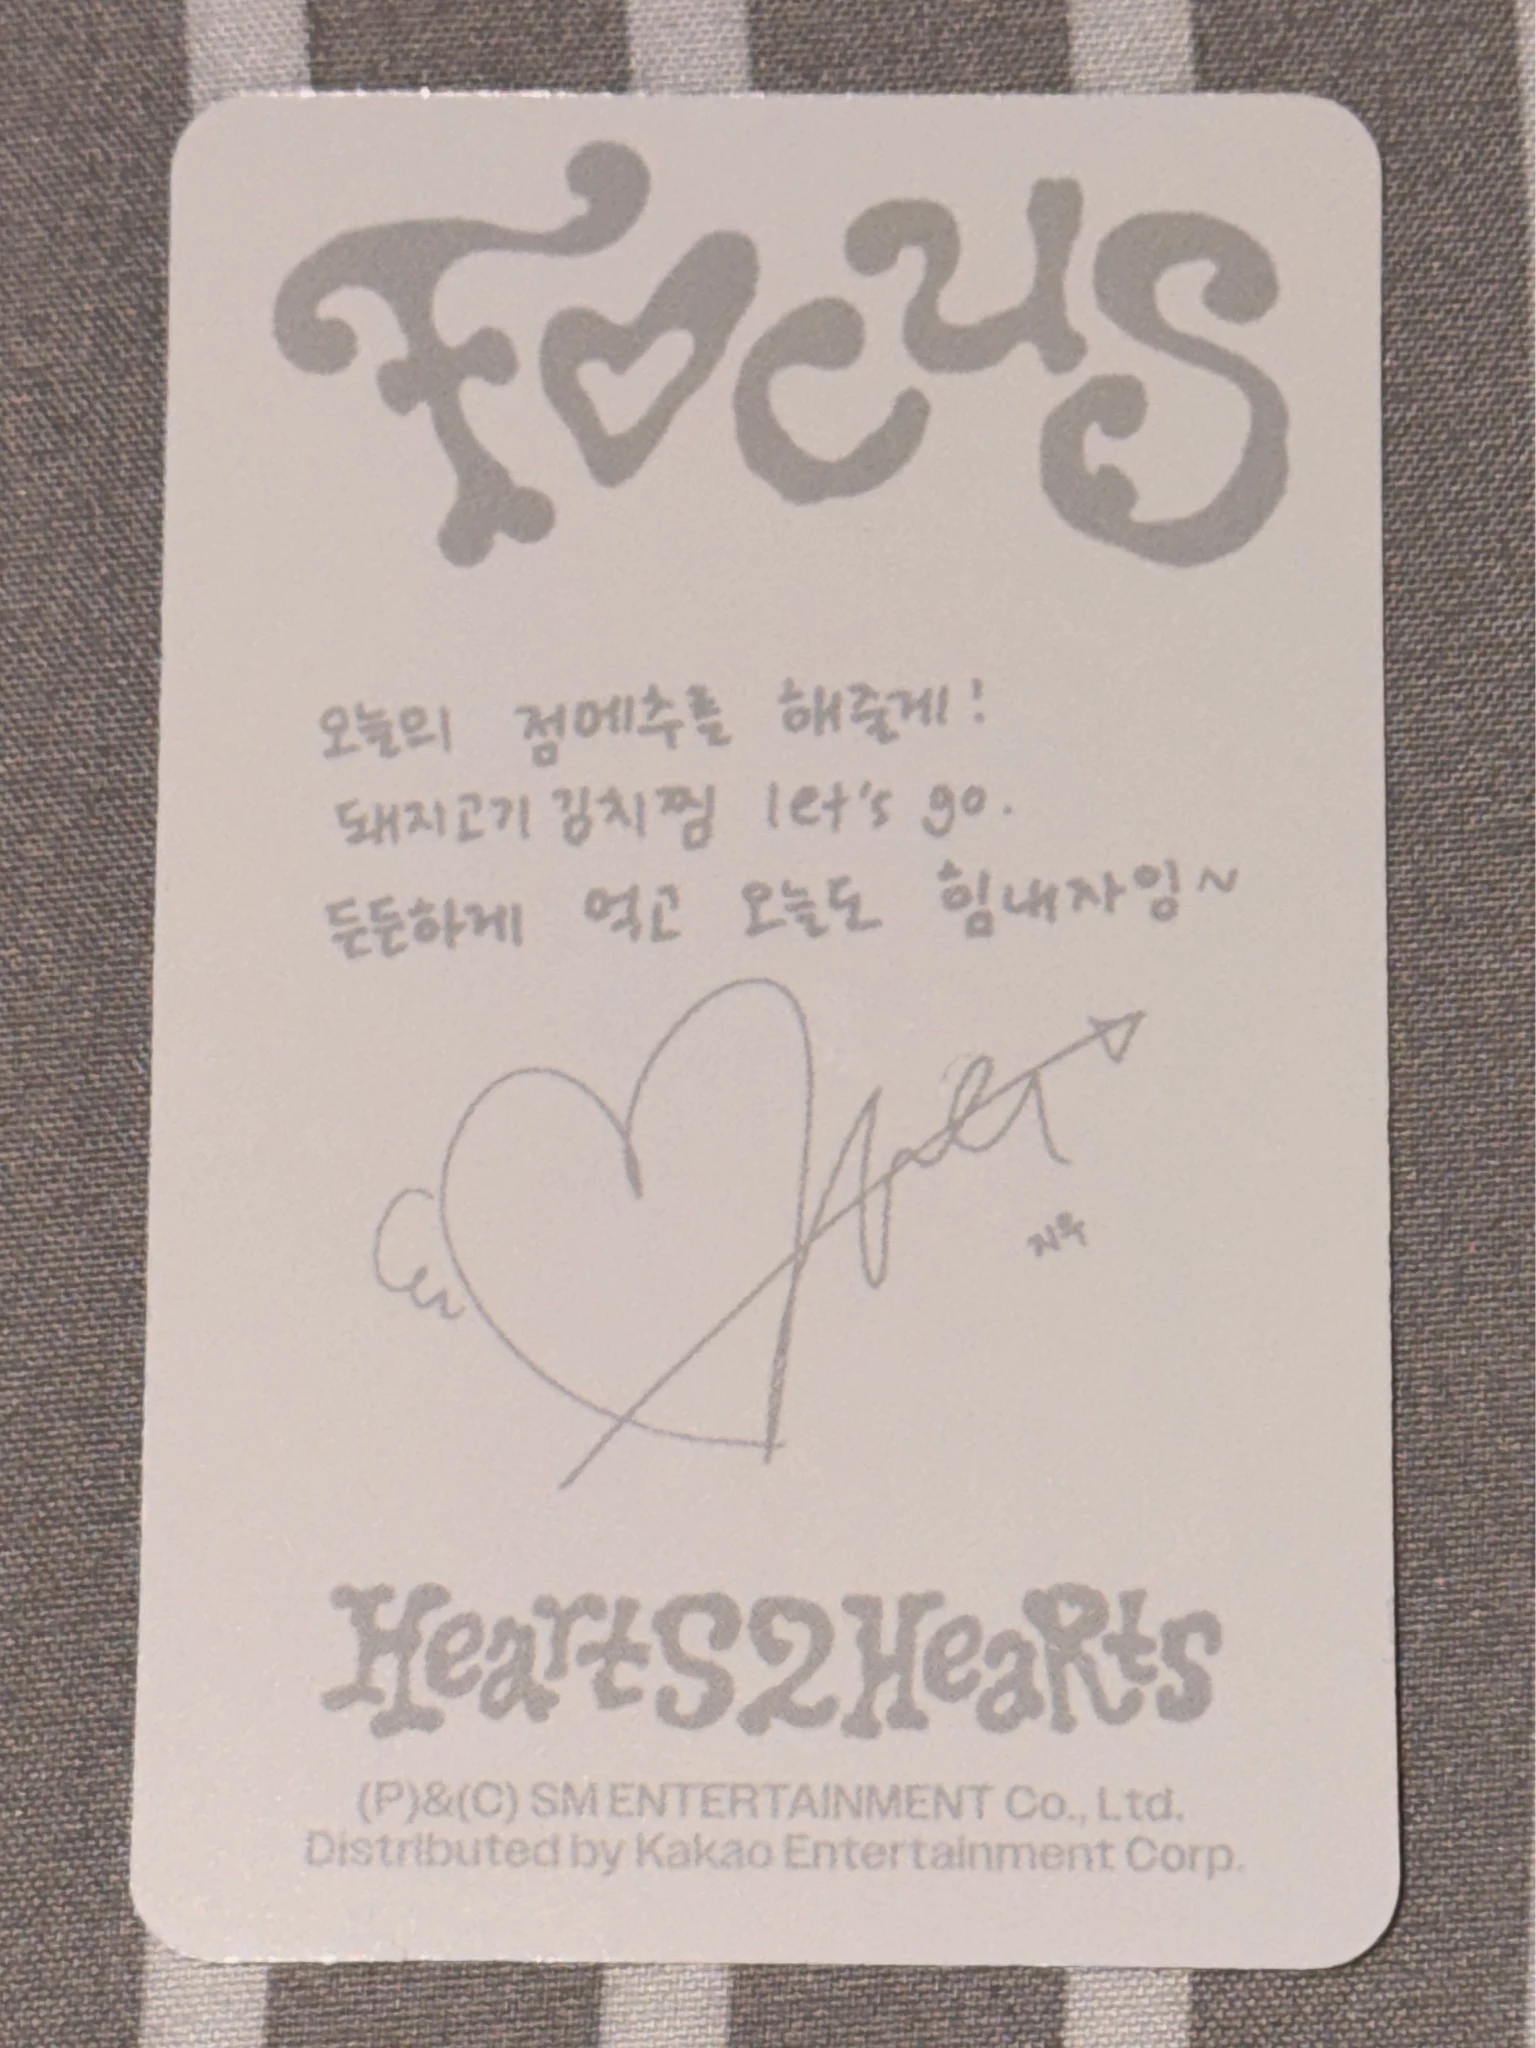 Focus
오늘의 점메추를 해줄게!
돼지고기 김치찜 let's go.
든든하게 먹고 오늘도 힘내자잉~
지우
Hearts2Hearts
(P)&(C) SM ENTERTAINMENT Co., Ltd.
Distributed by Kakao Entertainment Corp.